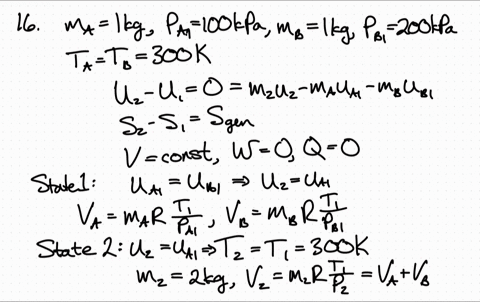 16. m_A = 1kg, P_A1 = 100kPa, m_B = 1kg, P_B1 = 200kPa
T_A = T_B = 300K
U_2 - U_1 = 0 = m_2u_2 - m_Au_A1 - m_Bu_B1
S_2 - S_1 = S_gen
V = const, W = 0, Q = 0
State 1: u_A1 = u_B1 ⇒ u_2 = u_A1
V_A = m_A R T_1/P_A1, V_B = m_B R T_1/P_B1
State 2: u_2 = u_A1 ⇒ T_2 = T_1 = 300K
m_2 = 2kg, V_2 = m_2 R T_1/P_2 = V_A + V_B